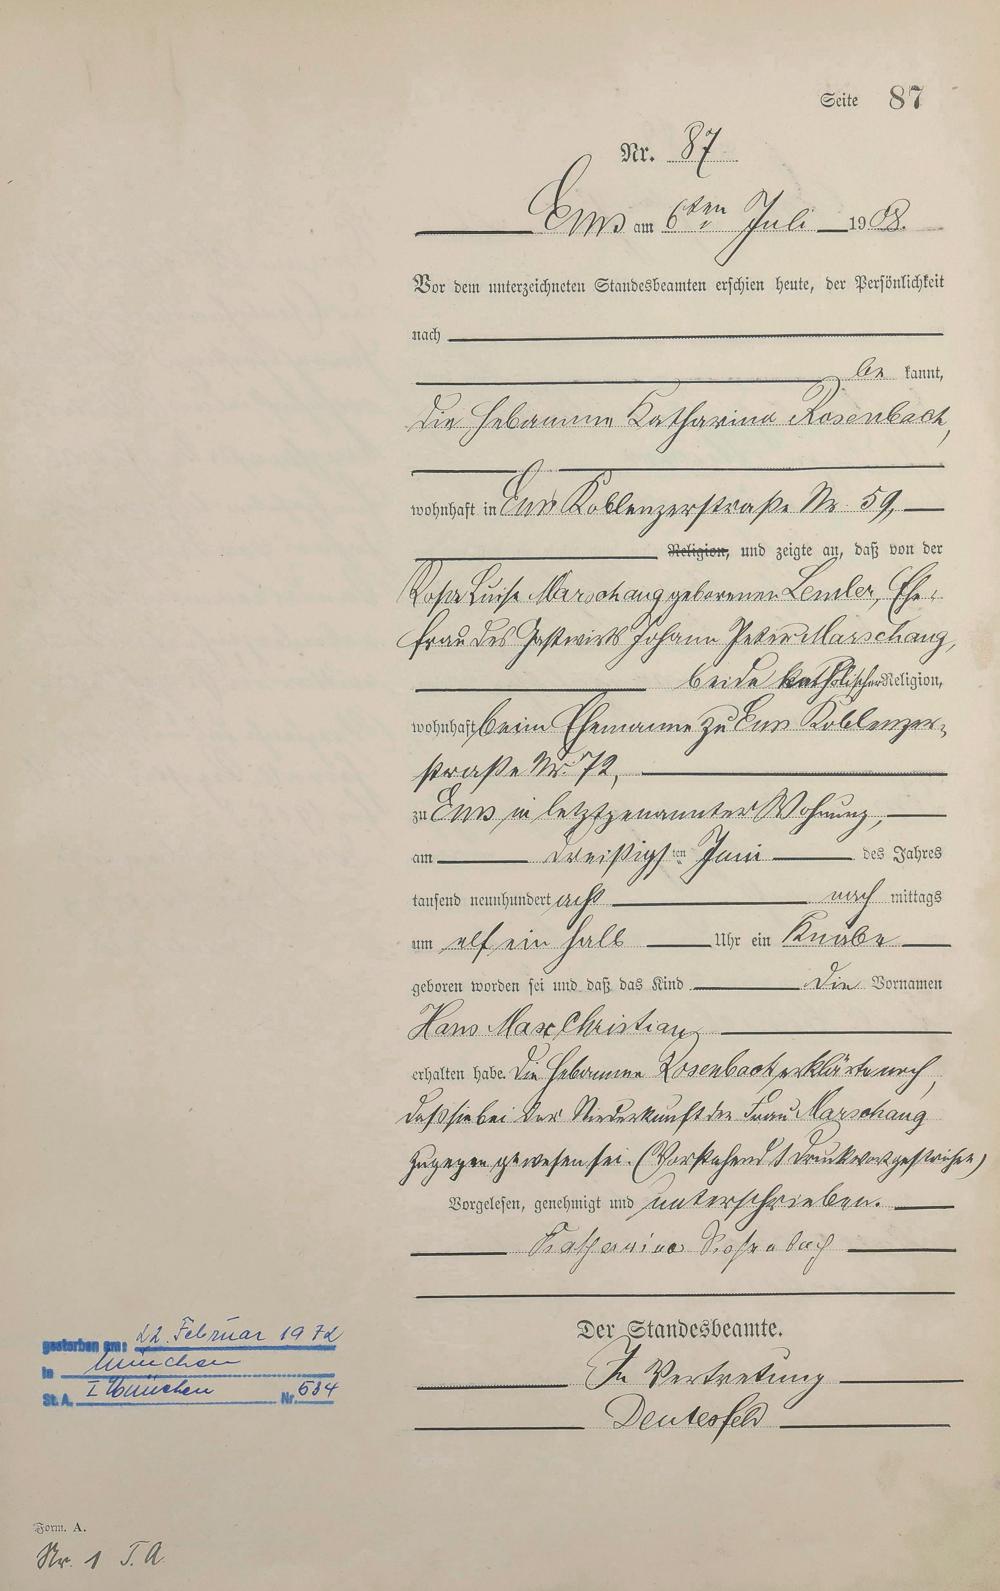 Seite 87
Nr. 87
Ems am 6ten Juli 1908.
Vor dem unterzeichneten Standesbeamten erschien heute, der Persönlichkeit
nach
be kannt,
die Hebamme Katharina Rosenbach,
wohnhaft in Ems Koblenzerstraße Nr. 59,
Religion, und zeigte an, daß von der
Rosa Luise Marschang geborenen Lemler, Ehe-
frau des Gastwirts Johann Peter Marschang,
beide katholischer Religion,
wohnhaft beim Ehemanne zu Ems Koblenzer-
straße Nr. 72,
zu Ems in letztgenannter Wohnung,
am dreißigsten Juni des Jahres
tausend neunhundert acht nach mittags
um elf ein halb Uhr ein Knabe
geboren worden sei und daß das Kind die Vornamen
Hans Max Christian
erhalten habe. Die Hebamme Rosenbach erklärte noch,
daß sie bei der Niederkunft der Frau Marschang
zugegen gewesen sei. (Vorstehend 1 Druckwort gestrichen)
Vorgelesen, genehmigt und unterschrieben.
Katharina Rosenbach
Der Standesbeamte.
In Vertretung
gestorben am: 22. Februar 1972
in München
St. A. I München Nr. 534
Form. A.
Nr. 1 T. A.